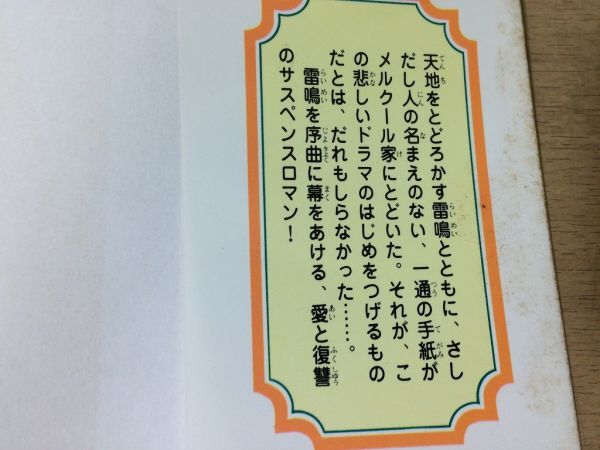 天地をとどろかす雷鳴とともに、さし
だし人の名まえのない、一通の手紙が
メルクール家にとどいた。それが、こ
の悲しいドラマのはじめをつげるもの
だとは、だれもしらなかった……。
雷鳴を序曲に幕をあける、愛と復讐
のサスペンスロマン！